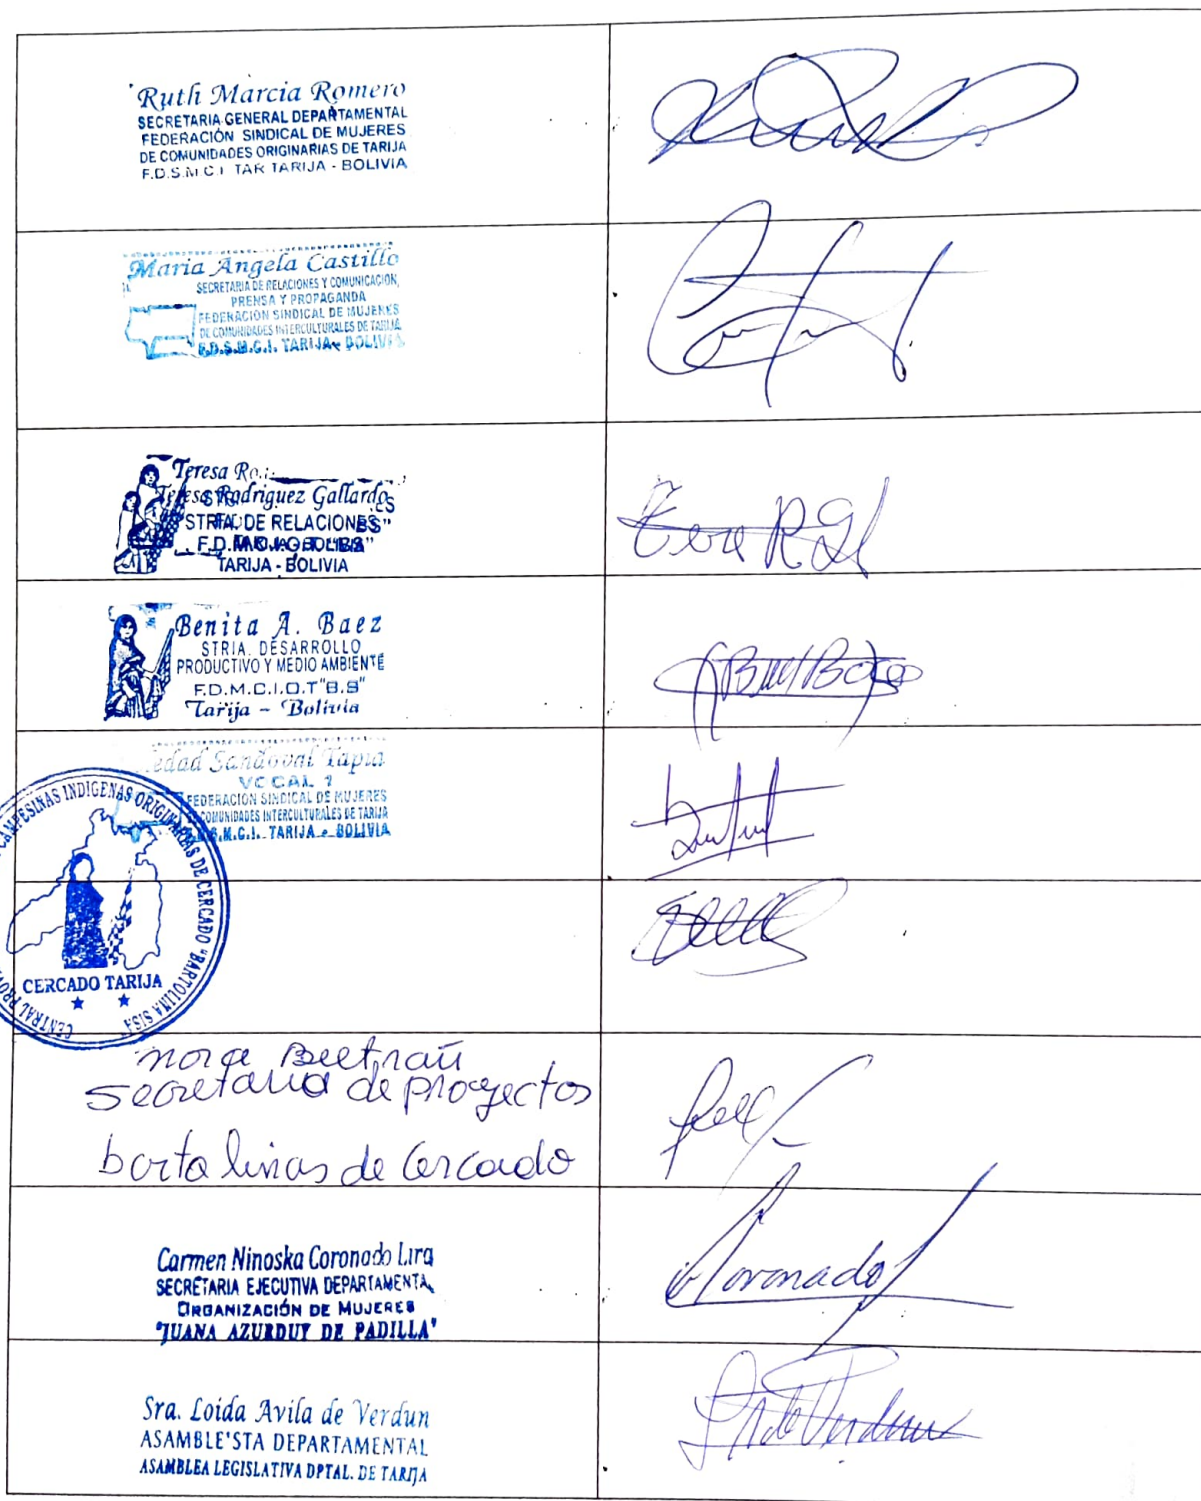 Ruth Marcia Romero
SECRETARIA GENERAL DEPARTAMENTAL
FEDERACIÓN SINDICAL DE MUJERES
DE COMUNIDADES ORIGINARIAS DE TARIJA
F.D.S.M.C.I. TAR TARIJA - BOLIVIA
Maria Angela Castillo
SECRETARIA DE RELACIONES Y COMUNICACION,
PRENSA Y PROPAGANDA
FEDERACION SINDICAL DE MUJERES
DE COMUNIDADES INTERCULTURALES DE TARIJA
F.D.S.M.C.I. TARIJA - BOLIVIA
Teresa Ro
Teresa Rodriguez Gallardo
STRIA. DE RELACIONES"
F.D.
TARIJA - BOLIVIA
Tere R Gl
Benita A. Baez
STRIA. DESARROLLO
PRODUCTIVO Y MEDIO AMBIENTE
F.D.M.C.I.O.T "B.S"
Tarija - Bolivia
edad Sandoval Tapia
VOCAL 1
FEDERACION SINDICAL DE MUJERES
COMUNIDADES INTERCULTURALES DE TARIJA
S.M.C.I. TARIJA - BOLIVIA
CAMPESINAS INDIGENAS ORIGINARIAS DE CERCADO "BARTOLINA SISA
CERCADO TARIJA
CENTRAL PROV
Nora Beltran
Secretaria de proyectos
bartolinas de Cercado
Carmen Ninoska Coronado Lira
SECRETARIA EJECUTIVA DEPARTAMENTA
ORGANIZACIÓN DE MUJERES
"JUANA AZURDUY DE PADILLA"
Coronado
Sra. Loida Avila de Verdun
ASAMBLE'STA DEPARTAMENTAL
ASAMBLEA LEGISLATIVA DPTAL. DE TARIJA